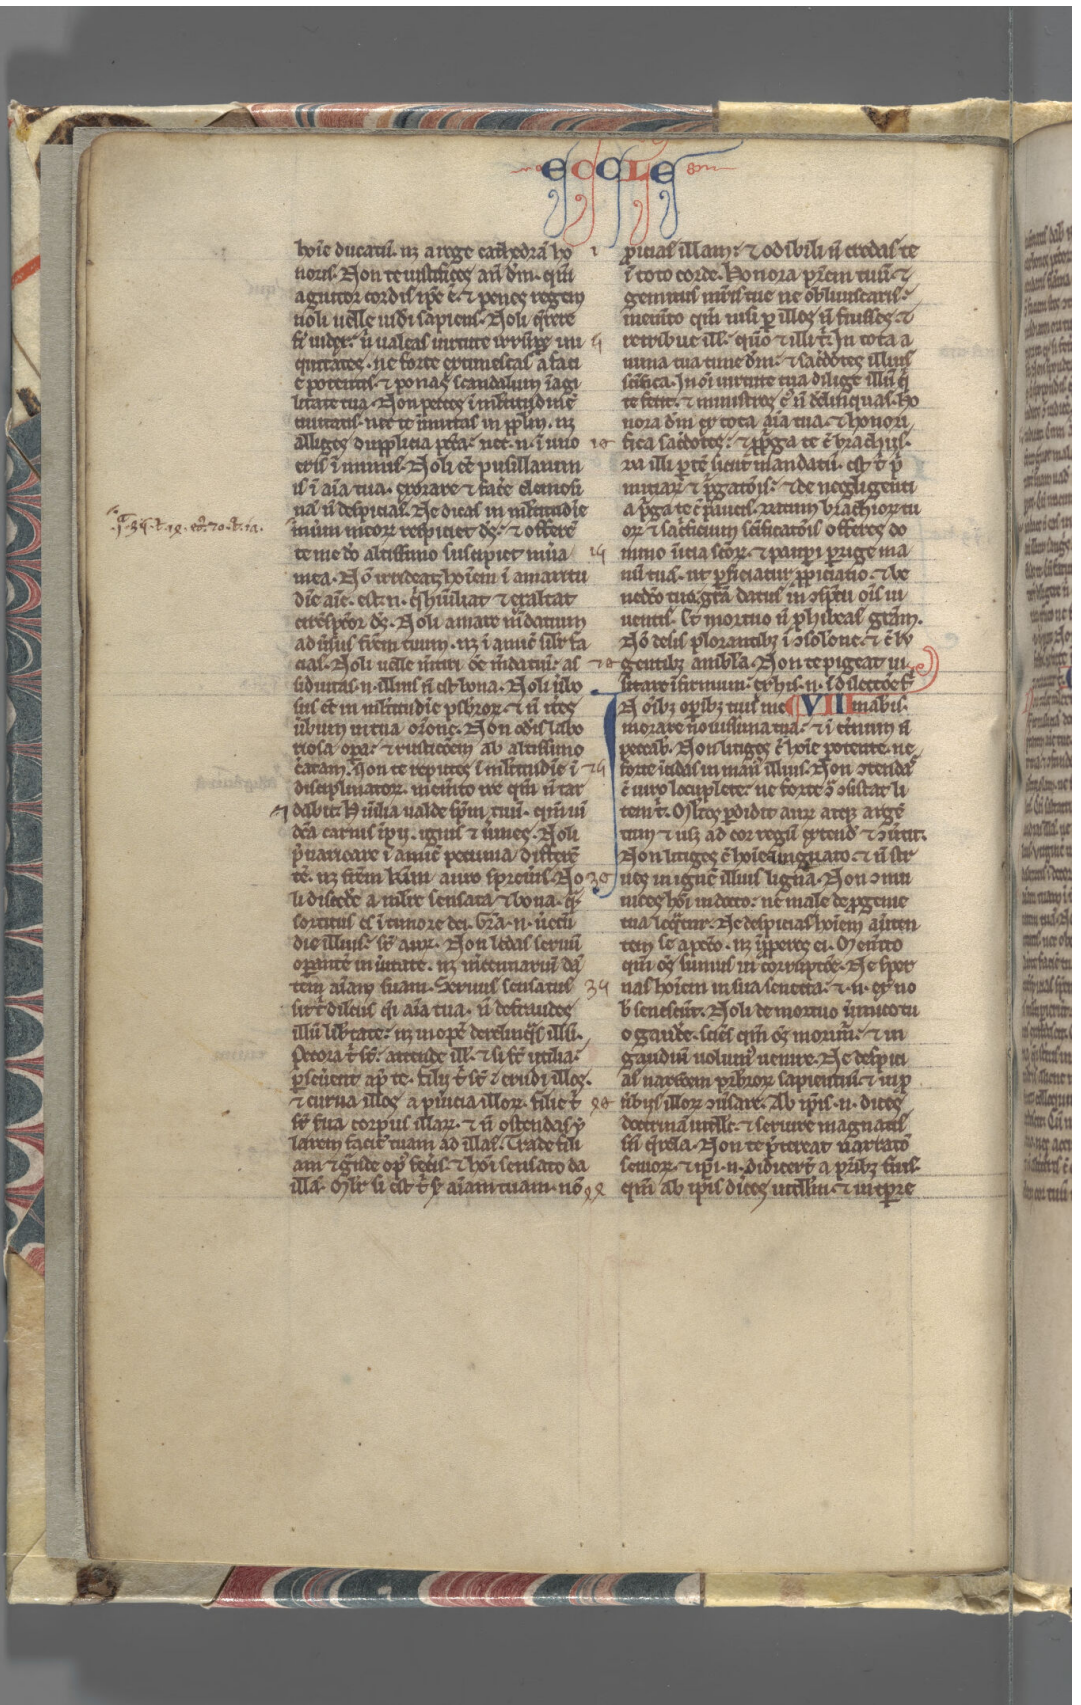 ECCLE
hoīe ducatū. nz a rege cathedrā ho
noris. Non te iustifices an̄ dm̄. qm̄
agnitor cordis ip̄e ē. ⁊ penes regem
noli uelle uid̓i sapiens. Noli q̄rere
fi̓ iudex. n̄ ualeas uirtute irrūpe ini
quitates. ne forte extimescas a faci
e potentis. ⁊ ponas scandalum ī agi
litate tua. Non pecces ī ml̓titudinē
ciuitatis. nec te īmittas in pplm̄. nz
alliges dupplicia pc̄ca. nec. n. ī uno
eris īmunis. Noli eē pusillanim
is ī aīa tua. exorare ⁊ fac̓e elemosi
nā n̄ despicias. Ne dicas in ml̓titudīe
mūnum meoꝝ respiciet ds̄. ⁊ offerē
te me dō altissimo suscipiet mūa
mea. Nō irrideas hoīem ī amaritu
dīe aīe. est. n. q̓ hūiliat ⁊ exaltat
circūspc̄or ds̄. Noli amare mdaciū
adūsus frēm tuum. nz ī amic̄ sil̓r fa
cias. Noli uelle mtiri oē mdaciū. as
siduitas. n. illius n̄ est bona. Noli ūbo
sus eē in ml̓titudīe p̄sb̓roꝝ. ⁊ n̄ it̓es
ūbum in tua or̄one. Non od̓is labo
riosa opa. ⁊ rusticōem ab altissimo
c̓atam. Non te reputes ī ml̓titudīe ī
disciplinatoꝝ. memto ire qm̄ n̄ tar
dabit. Hūilia ualde sp̄m tuū. qm̄ ui
dc̄a carnis īpij. ignis ⁊ ūmes. Noli
p̄uaricare ī amic̄ pecunia differē
te. nz frēm k̄m auro spreūis. No
li disced̓e a mlīre sensata ⁊ bona. q̄
sortitus es ī timore dei. gr̄a. n. ūecū
die illius. sr̄ auꝝ. Non ledas seruū
opantē in ūitate. nz mcenariū dā
tem aīam suam. Seruus sensatus
sit t̓ dilcūs q̓i aīa tua. n̄ defraudes
illū lib̓tate. nz inopē derelinq̄s illū.
Pecora t̓ st̄. attende ill̓. ⁊ si st̄ utilia.
pseūent ap̄ te. filij t̓ st̄ ⁊ erudi illos.
⁊ curua illos a pūicia illoꝝ. filie t̓
st̄ serua corpus illaꝝ. ⁊ n̄ ostendas y
larem faciē tuam ad illas. Trade fili
am ⁊ g̓nde op̄ fec̓is. ⁊ hoī sensato da
illā. Ml̓r si est t̓ s̓ aīam tuam. nō
pitias illam. ⁊ odibili n̄ credas te
ī toto corde. Honora prēm tuū. ⁊
gemitus mr̄is tue ne obliuiscaris.
memto qm̄ nisi p illos n̄ fuisses. ⁊
retribue ill̓. quō ⁊ illi t̓. In tota a
nima tua time dm̄. ⁊ sac̓dotes illius
sc̄ifica. In oī uirtute tua dilige illū q̓
te fecit. ⁊ ministros ē n̄ delinquas. Ho
nora dm̄ ex tota aīa tua. ⁊ honori
fica sac̓dotes. ⁊ ppga te c̄ brachijs.
Da illi ptē sicut mandatū est t̓ p̄
miciaꝝ ⁊ pgatōis. ⁊ de negligenti
a pga te c̄ paucis. Datum brachioꝝ tu
oꝝ ⁊ sac̓ficium sc̄ificatōis offeres do
mino īicia sc̄oꝝ. ⁊ paupi prige ma
nū tuā. ut pficiatur ppiciatio. ⁊ be
nedc̄o tua. gr̄a datus in ꝯspc̄u oīs ui
uentis. ⁊ mortuo n̄ phibeas gr̄am.
Nō desis plorantibꝫ ī ꝯsolōne. ⁊ c̄ lu
gentibꝫ ambl̓a. Non te pigeat ui
sitare īfirmum. ex his. n. ī dilectōe f
VIII
N oībꝫ opibꝫ tuis me mabis.
morare nouissima tua. ⁊ ī et̓num n̄
peccab. Non litiges c̄ hoīe potente. ne
forte īcidas in man̄ illius. Non ꝯtendas
c̄ uiro locuplete. ne forte ꝯ̄ ꝯstituat li
tem t̓. Ml̓tos pdidit auꝝ atqꝫ argē
tum ⁊ usqꝫ ad cor regū extend̓ ⁊ ꝯūtit.
Non litiges c̄ hoīe linguato. ⁊ n̄ str
ues in ignē illius ligna. Non ꝯmu
nices hoī indocto. ne male de pgenie
tua loq̄tur. Ne despicias hoīem au̓ten
tem se a pc̄cō. nz ipperes ei. Memto
qm̄ oēs sumus in corruptōe. Ne sper
nas hoīem in sua senecta. ⁊. n. ex no
b senescūt. Noli de mortuo inimico tu
o gaud̓e. sciēs qm̄ oēs morimr̄. ⁊ in
gaudiū nolum̓ uenire. Ne despici
as narrōem pb̓roꝝ sapientiū. ⁊ in p
ūbijs illoꝝ ꝯūsare. Ab ip̄is. n. dices
doctrinā intell̓c. ⁊ seruire magnatis
sn̄ q̄rela. Non te p̓tereat narratō
senioꝝ. ⁊ ip̄i. n. didicer̄t a prībꝫ suis.
qm̄ ab ip̄is dices intellm̄. ⁊ in tpre